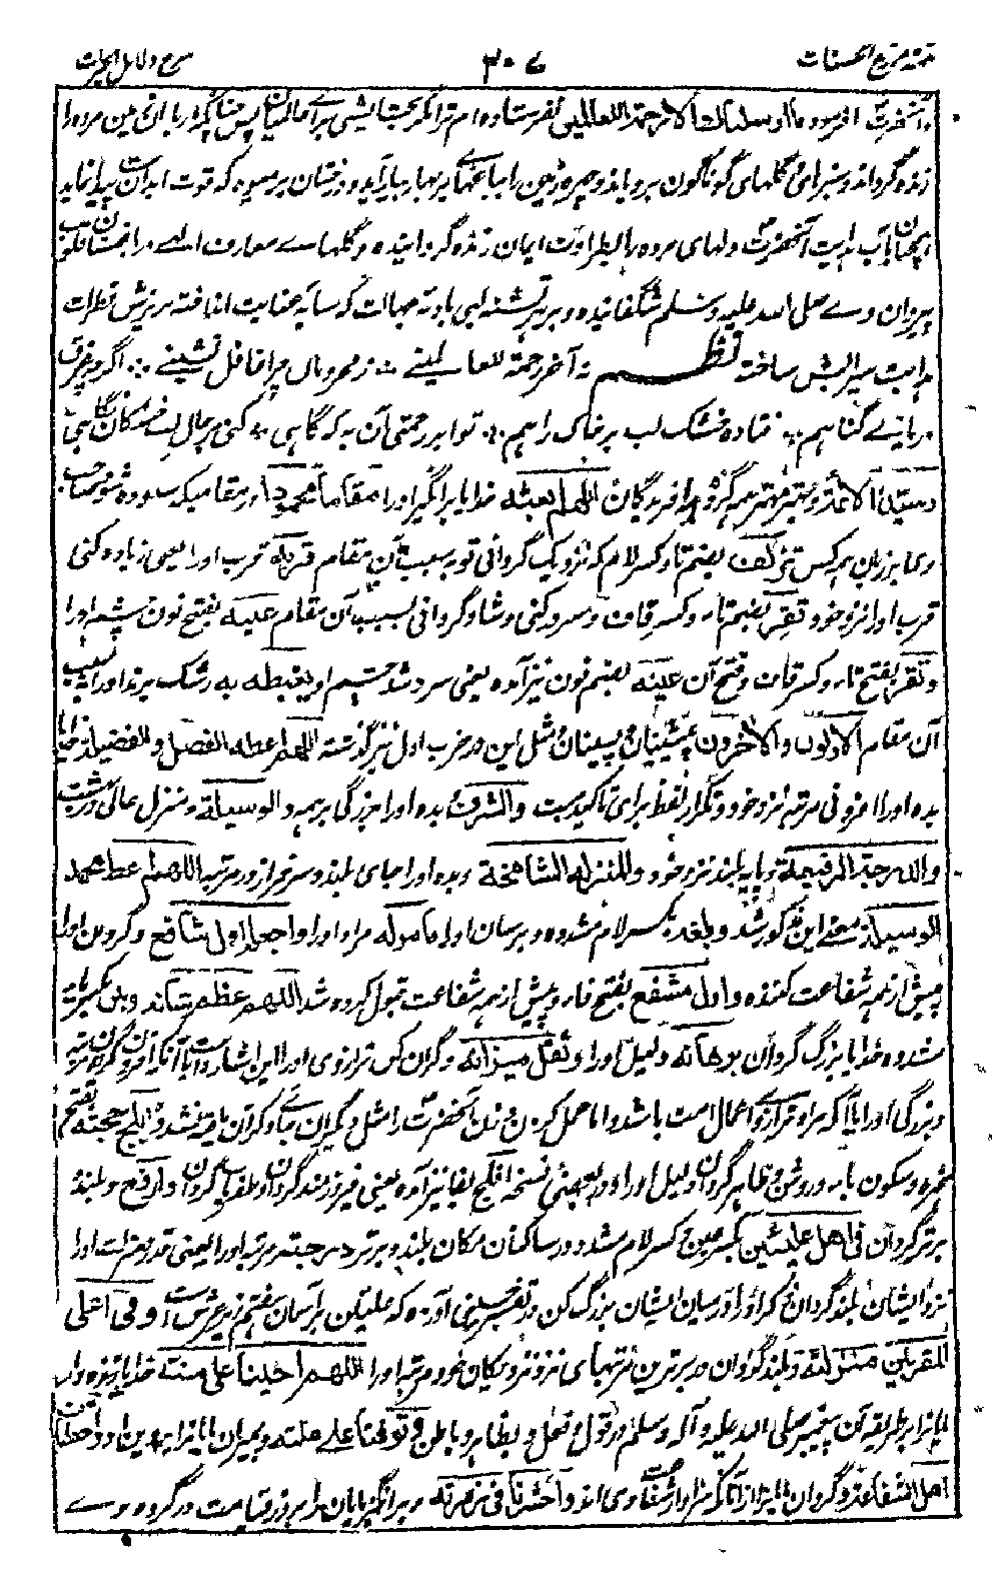 تتمه مزرع الحسنات ۳۰۷ شرح دلائل الخیرات
آنحضرت فرموده وما ارسلناک الا رحمة للعالمین نفرستاده ام ترا مگر بخشایشی برای عالمیان پس چنانکه باران زمین مرده را
زنده گرداند و سبزهای و گلهای گوناگون برویاند و چهره زمین را بباغهای پر بهار بیاراید و درختان پر میوه که قوت ابدان پیدا نماید
همچنان بآب هدایت آنحضرت دلهای مرده را بطراوت ایمان زنده گردانیده و گلهای معارف الهی را بچمنستان قلوب
پیروان وے صلی الله علیه وسلم شگفانیده و هر تشنه لبی بادیه جهالت که سایه عنایت انداخته بریزش قطرات
هدایت سیرابش ساخته نظم نه آخر رحمة للعالمینی ز محرومان چرا غافل نشینی اگرچه غرق
دریای گناهیم فتاده خشک لب بر خاک راهیم تو ابر رحمتی آن به که گاهی کنی بر حال لب خشکان نگاهی
اللهم ابعثه خدایا برانگیز او را مقاما محمودا در مقامیکه ستوده شود صاحب
وی بر زبان هر کس تزلف بضم تا و کسر لام که نزدیک گردانی تو به بسبب آن مقام قربه قرب او را یعنی زیاده کنی
قرب او را نزد خود و تقر بضم تا و کسر قاف و سرد کنی و شاد گردانی بسبب آن مقام عینه بفتح نون چشم او را
و تقر بفتح تا و کسر قاف و فتح آن عینه بضم نون نیز آمده یعنی سرد شد چشم او یغبطه به رشک برند او را بسبب
آن مقام الاولون والآخرون پیشینیان و پسینیان و مثل این در حزب اول نیز گذشته اللهم اعطه الفضل والفضیلة خدایا
بده او را افزونی مرتبه نزد خود و تکرار لفظ برای تاکیدست والشرف بده او را بزرگی بر همه والوسیلة و منزل عالی در بهشت
والدرجة الرفیعة و پایه بلند نزد خود والمنزلة الشامخة و بده او را جای بلند و سرفراز در مرتبه اللهم اعط محمدا
الوسیلة معنی این مذکور شد و بلغه بکسر لام مشدده و برسان او را ماموله مراد او را واجعله اول شافع و گردان او را
پیش از همه شفاعت کننده واول مشفع بفتح فا و پیش از همه شفاعت قبول کرده شد اللهم عظم برهانه
مشدده خدایا بزرگ گردان برهانه دلیل او را وثقل میزانه و گران کن ترازوی او را این اشارت است
و بزرگی او را یا آنکه مراد ترازوی اعمال امت باشد
و سکون با و روشن و ظاهر گردان دلیل او را و در بعضی نسخه افلج بفا نیز آمده یعنی فیروزمند گردان وارفع و بلند و
برتر گردان فی اهل علیین بکسر عین و کسر لام مشدد در ساکنان مکان بلند و برتر درجته مرتبه او را یعنی قدر و منزلت او را
نزد ایشان بلند گردان و ذکر او را در میان ایشان بزرگ کن و در تفسیر حسینی آورده که علیین بر آسمان هفتم زیر عرش است وفی اعلی
المقربین منزلته و بلند گردان در برترین مرتبهای نزد نزدیکان خود مرتبه او را اللهم احینا علی سنته خدایا زنده دار
ما را بر طریقه آن پیغمبر صلی الله علیه وآله وسلم در قول و فعل و بظاهر و باطن وتوفنا علی ملته و بمیران ما را بر دین او واجعلنا من
اهل الشفاعة و گردان ما را از آنانکه سزاوار شفاعت وی اند واحشرنا فی زمرته و برانگیز یا ما را بروز قیامت در گروه وے